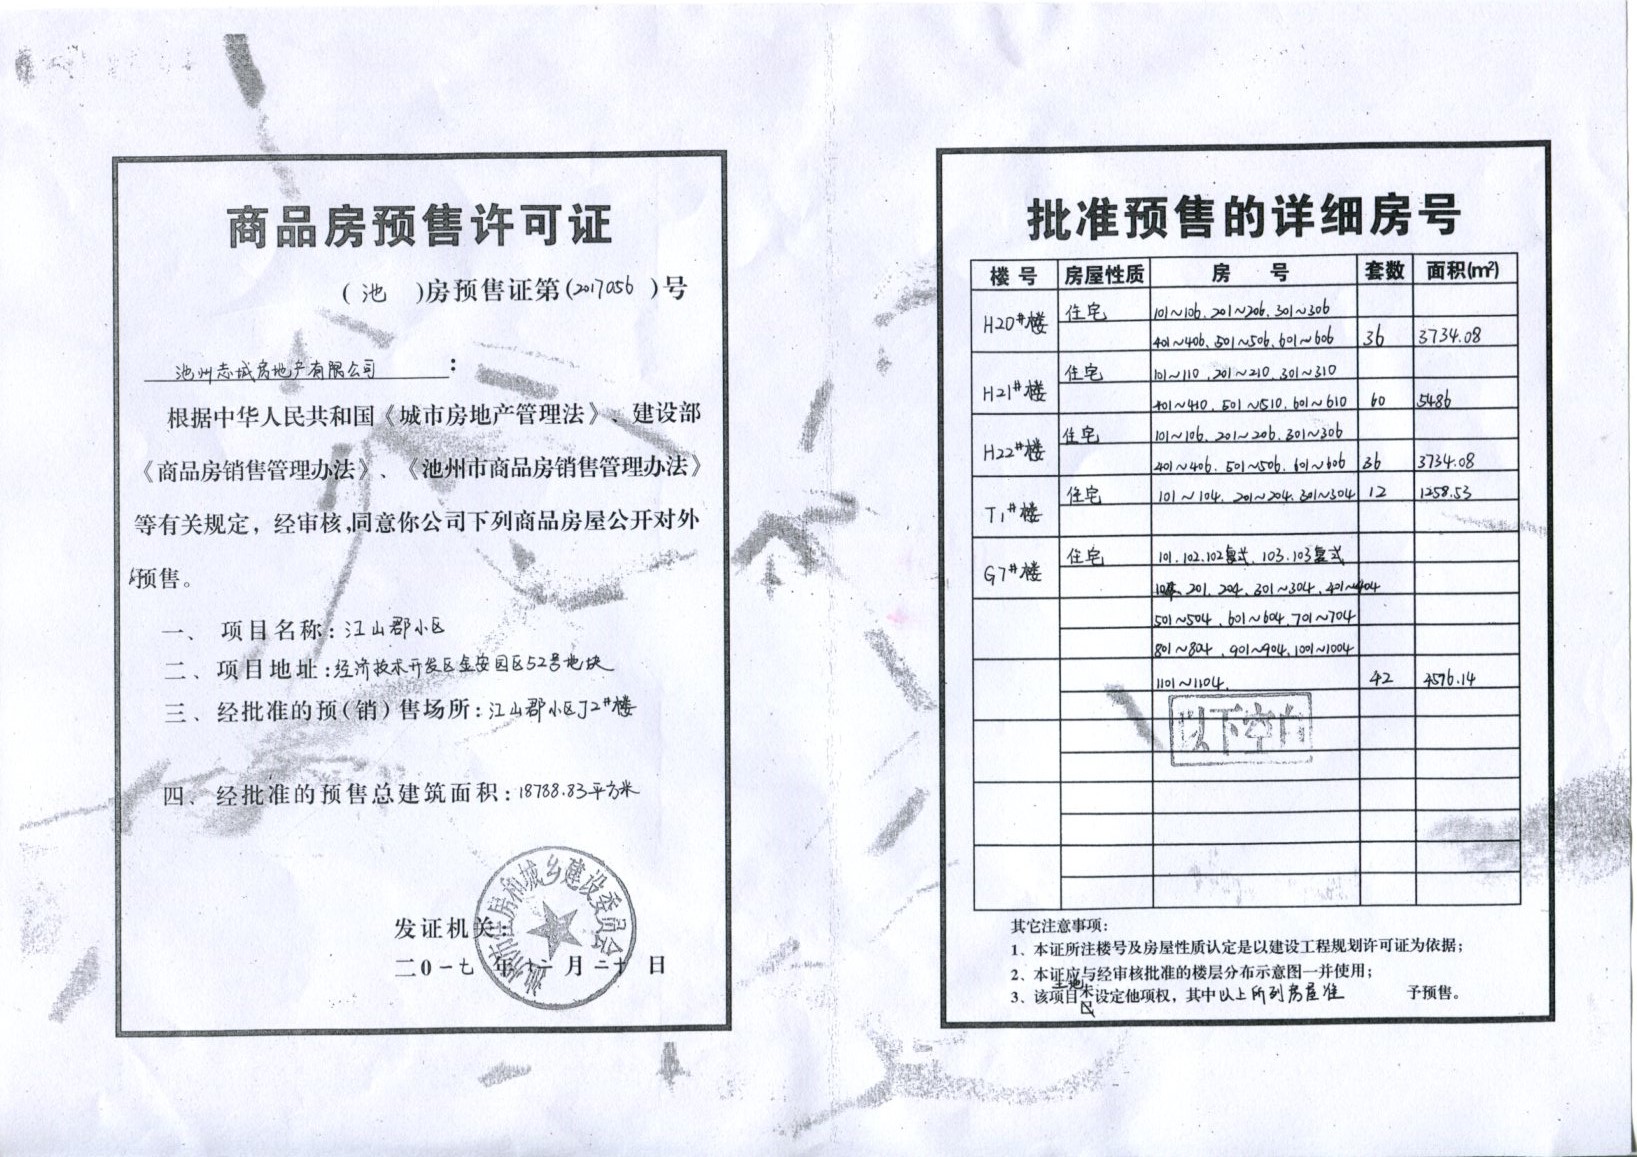 商品房预售许可证
(池 )房预售证第(2017056 )号
池州志城房地产有限公司:
根据中华人民共和国《城市房地产管理法》、建设部
《商品房销售管理办法》、《池州市商品房销售管理办法》
等有关规定，经审核,同意你公司下列商品房屋公开对外
预售。
一、项目名称:江山郡小区
二、项目地址:经济技术开发区金安园区52号地块
三、经批准的预(销)售场所:江山郡小区J2#楼
四、经批准的预售总建筑面积:18788.83平方米
发证机关:
二0一七年十二月二十日
池州市住房和城乡建设委员会
批准预售的详细房号
楼号 房屋性质 房号 套数 面积(m²)
H20#楼 住宅 101~106、201~206、301~306
401~406、501~506、601~606 36 3734.08
H21#楼 住宅 101~110、201~210、301~310
401~410、501~510、601~610 60 5486
H22#楼 住宅 101~106、201~206、301~306
401~406、501~506、601~606 36 3734.08
T1#楼 住宅 101~104、201~204、301~304 12 1258.53
G7#楼 住宅 101、102、102复式、103、103复式
201、204、301~304、401~404
501~504、601~604、701~704
801~804、901~904、1001~1004
1101~1104、 42 4576.14
以下空白
其它注意事项:
1、本证所注楼号及房屋性质认定是以建设工程规划许可证为依据;
2、本证应与经审核批准的楼层分布示意图一并使用;
土地 未
3、该项目已设定他项权，其中以上所列房屋准 予预售。